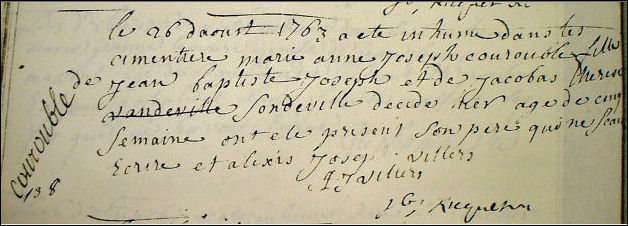 le 26 daoust 1763 a ete inhume dans les
cimentiere marie anne Joseph courouble fille
de Jean baptiste Joseph et de Jacobas therese
vandeville Sondeville decide hier age de cinq
Semaine ont ete present Son pere qui ne Scait
Ecrire et alexis Josep villers
AJ villers
courouble
138